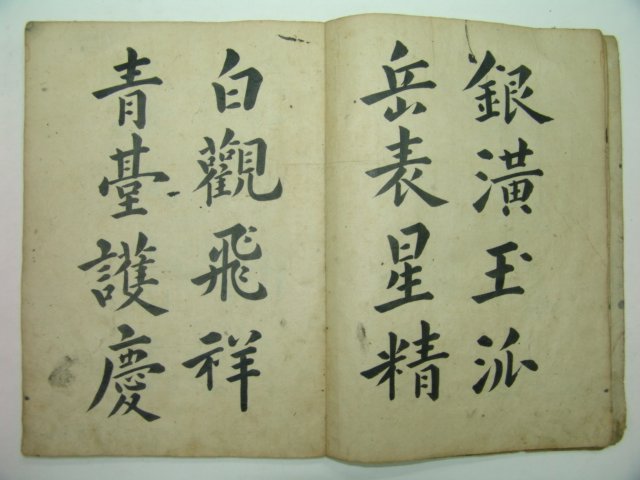 銀潢玉派
岳表星精
白觀飛祥
青臺護慶